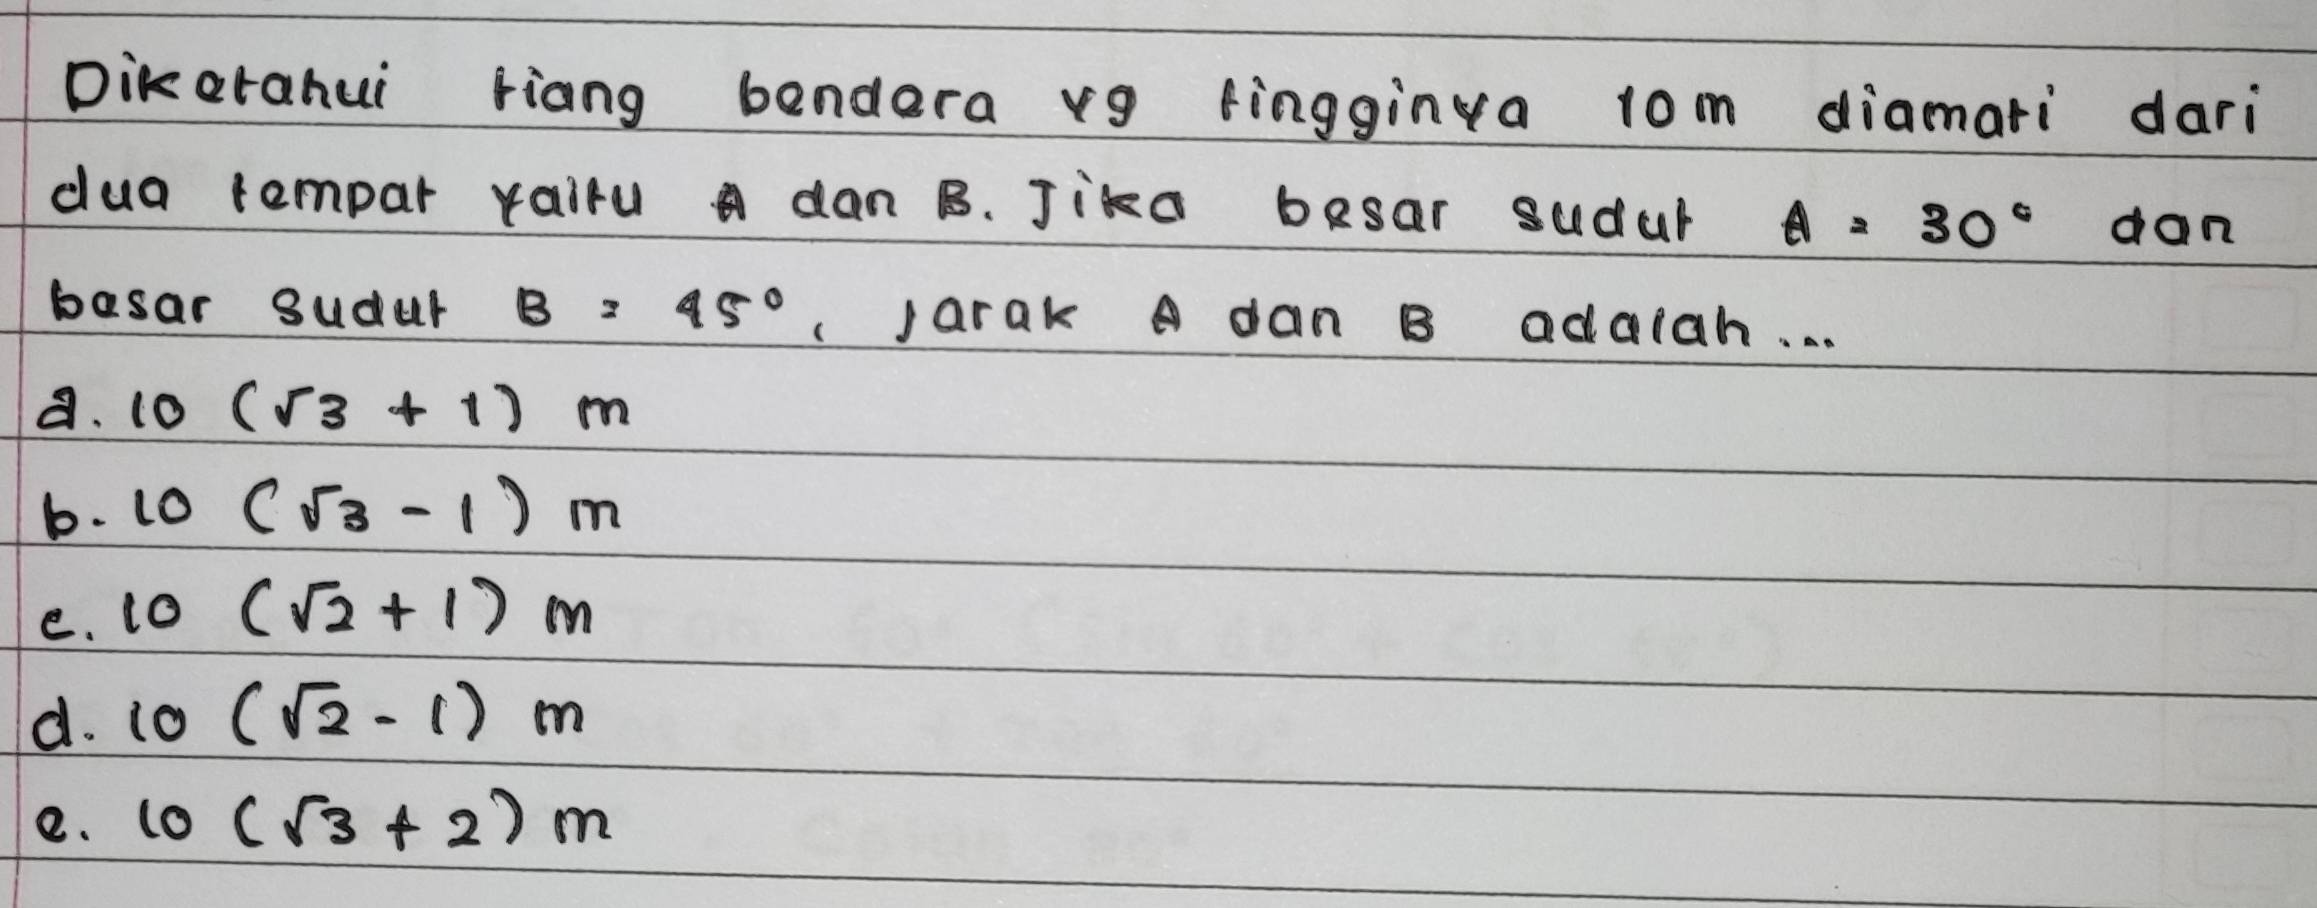 Diketahui tiang bendera yg tingginya 10 m diamati dari
dua tempat yaitu A dan B. Jika besar sudut A = 30° dan
besar sudut B = 45°, jarak A dan B adalah...
a. 10 (√3 + 1) m
b. 10 (√3 - 1) m
c. 10 (√2 + 1) m
d. 10 (√2 - 1) m
e. 10 (√3 + 2) m